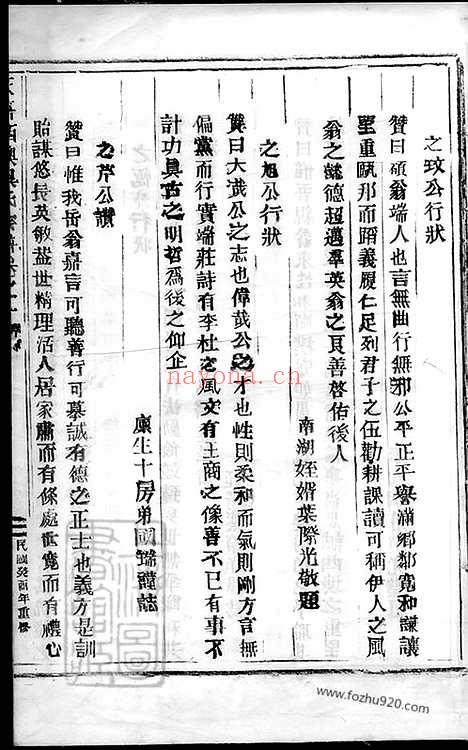 之玟公行狀
贊曰碩翁端人也言無曲行無邪公平正平譽滿鄉鄰寬和謙讓
望重瓯那而蹈義履仁足列君子之伍勸耕課讀可稱伊人之風
翁之懿德超邁羣英翁之良善啓佑後人
南湖姪婿葉際光敬題
之旭公行狀
贊曰大哉公之志也偉哉公之才也性則柔和而氣則剛方言無
偏黨而行實端莊詩有李杜之風文有主商之像善不已有事不
計功真古之明哲爲後之仰企
廪生十房弟國瑞謹誌
之芹公讚
贊曰惟我岳翁嘉言可聽善行可摹誠有德之正士也義方是訓
貽謀悠長英敏蓋世精理活人居家肅而有條處世寬而有禮心
民國癸酉年重修
nayona.cn
www.fozhu920.com